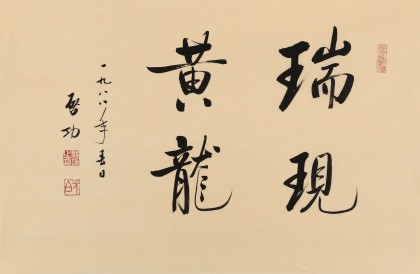 瑞現
黃龍
一九八八年春日
啓功